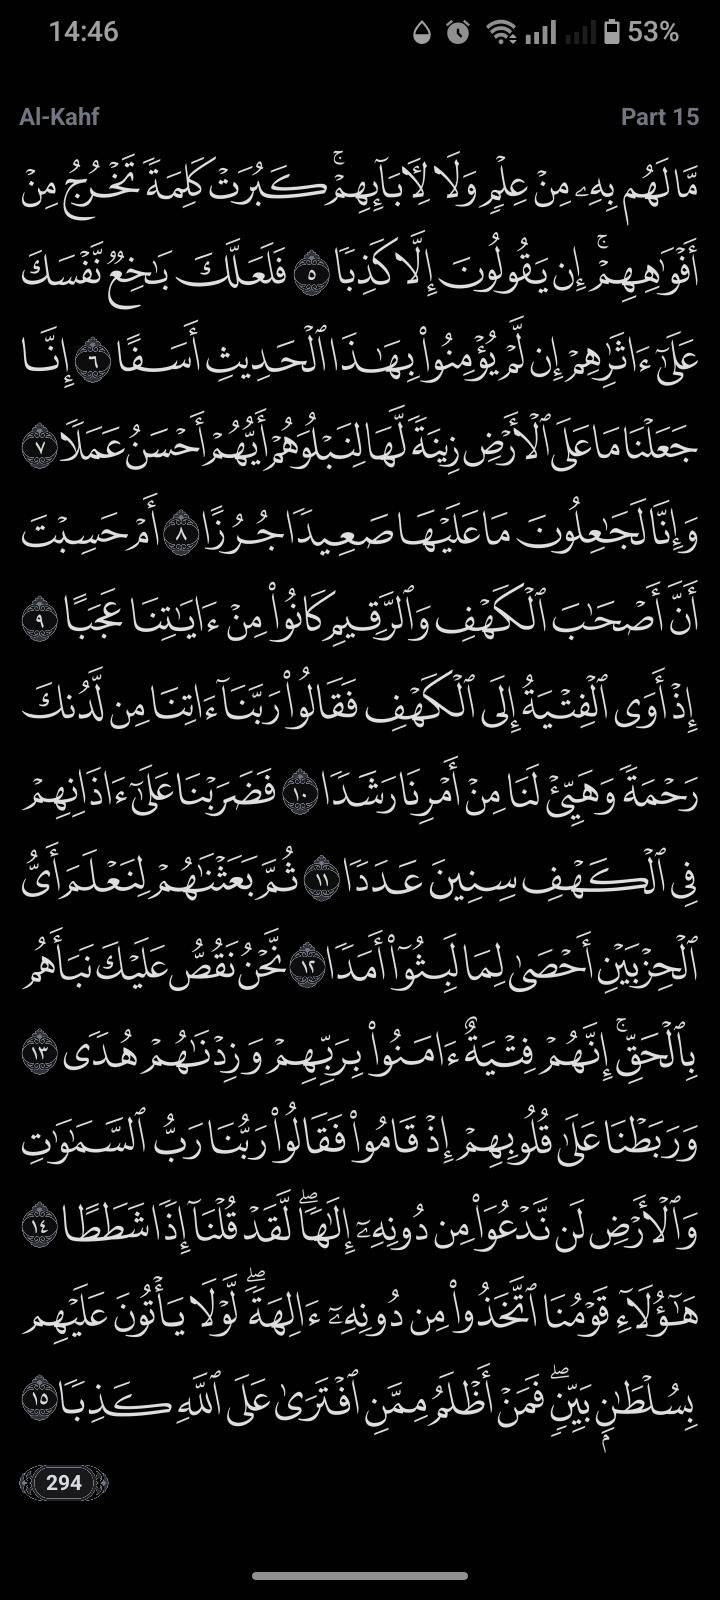 14:46 53%
Al-Kahf Part 15
مَّا لَهُم بِهِۦ مِنْ عِلْمٍ وَلَا لِـَٔابَآئِهِمْ ۚ كَبُرَتْ كَلِمَةً تَخْرُجُ مِنْ
أَفْوَٰهِهِمْ ۚ إِن يَقُولُونَ إِلَّا كَذِبًا ٥ فَلَعَلَّكَ بَـٰخِعٌ نَّفْسَكَ
عَلَىٰٓ ءَاثَـٰرِهِمْ إِن لَّمْ يُؤْمِنُوا۟ بِهَـٰذَا ٱلْحَدِيثِ أَسَفًا ٦ إِنَّا
جَعَلْنَا مَا عَلَى ٱلْأَرْضِ زِينَةً لَّهَا لِنَبْلُوَهُمْ أَيُّهُمْ أَحْسَنُ عَمَلًا ٧
وَإِنَّا لَجَـٰعِلُونَ مَا عَلَيْهَا صَعِيدًا جُرُزًا ٨ أَمْ حَسِبْتَ
أَنَّ أَصْحَـٰبَ ٱلْكَهْفِ وَٱلرَّقِيمِ كَانُوا۟ مِنْ ءَايَـٰتِنَا عَجَبًا ٩
إِذْ أَوَى ٱلْفِتْيَةُ إِلَى ٱلْكَهْفِ فَقَالُوا۟ رَبَّنَآ ءَاتِنَا مِن لَّدُنكَ
رَحْمَةً وَهَيِّئْ لَنَا مِنْ أَمْرِنَا رَشَدًا ١٠ فَضَرَبْنَا عَلَىٰٓ ءَاذَانِهِمْ
فِى ٱلْكَهْفِ سِنِينَ عَدَدًا ١١ ثُمَّ بَعَثْنَـٰهُمْ لِنَعْلَمَ أَىُّ
ٱلْحِزْبَيْنِ أَحْصَىٰ لِمَا لَبِثُوٓا۟ أَمَدًا ١٢ نَّحْنُ نَقُصُّ عَلَيْكَ نَبَأَهُم
بِٱلْحَقِّ ۚ إِنَّهُمْ فِتْيَةٌ ءَامَنُوا۟ بِرَبِّهِمْ وَزِدْنَـٰهُمْ هُدًى ١٣
وَرَبَطْنَا عَلَىٰ قُلُوبِهِمْ إِذْ قَامُوا۟ فَقَالُوا۟ رَبُّنَا رَبُّ ٱلسَّمَـٰوَٰتِ
وَٱلْأَرْضِ لَن نَّدْعُوَا۟ مِن دُونِهِۦٓ إِلَـٰهًا ۖ لَّقَدْ قُلْنَآ إِذًا شَطَطًا ١٤
هَـٰٓؤُلَآءِ قَوْمُنَا ٱتَّخَذُوا۟ مِن دُونِهِۦٓ ءَالِهَةً ۖ لَّوْلَا يَأْتُونَ عَلَيْهِم
بِسُلْطَـٰنٍۭ بَيِّنٍ ۖ فَمَنْ أَظْلَمُ مِمَّنِ ٱفْتَرَىٰ عَلَى ٱللَّهِ كَذِبًا ١٥
294